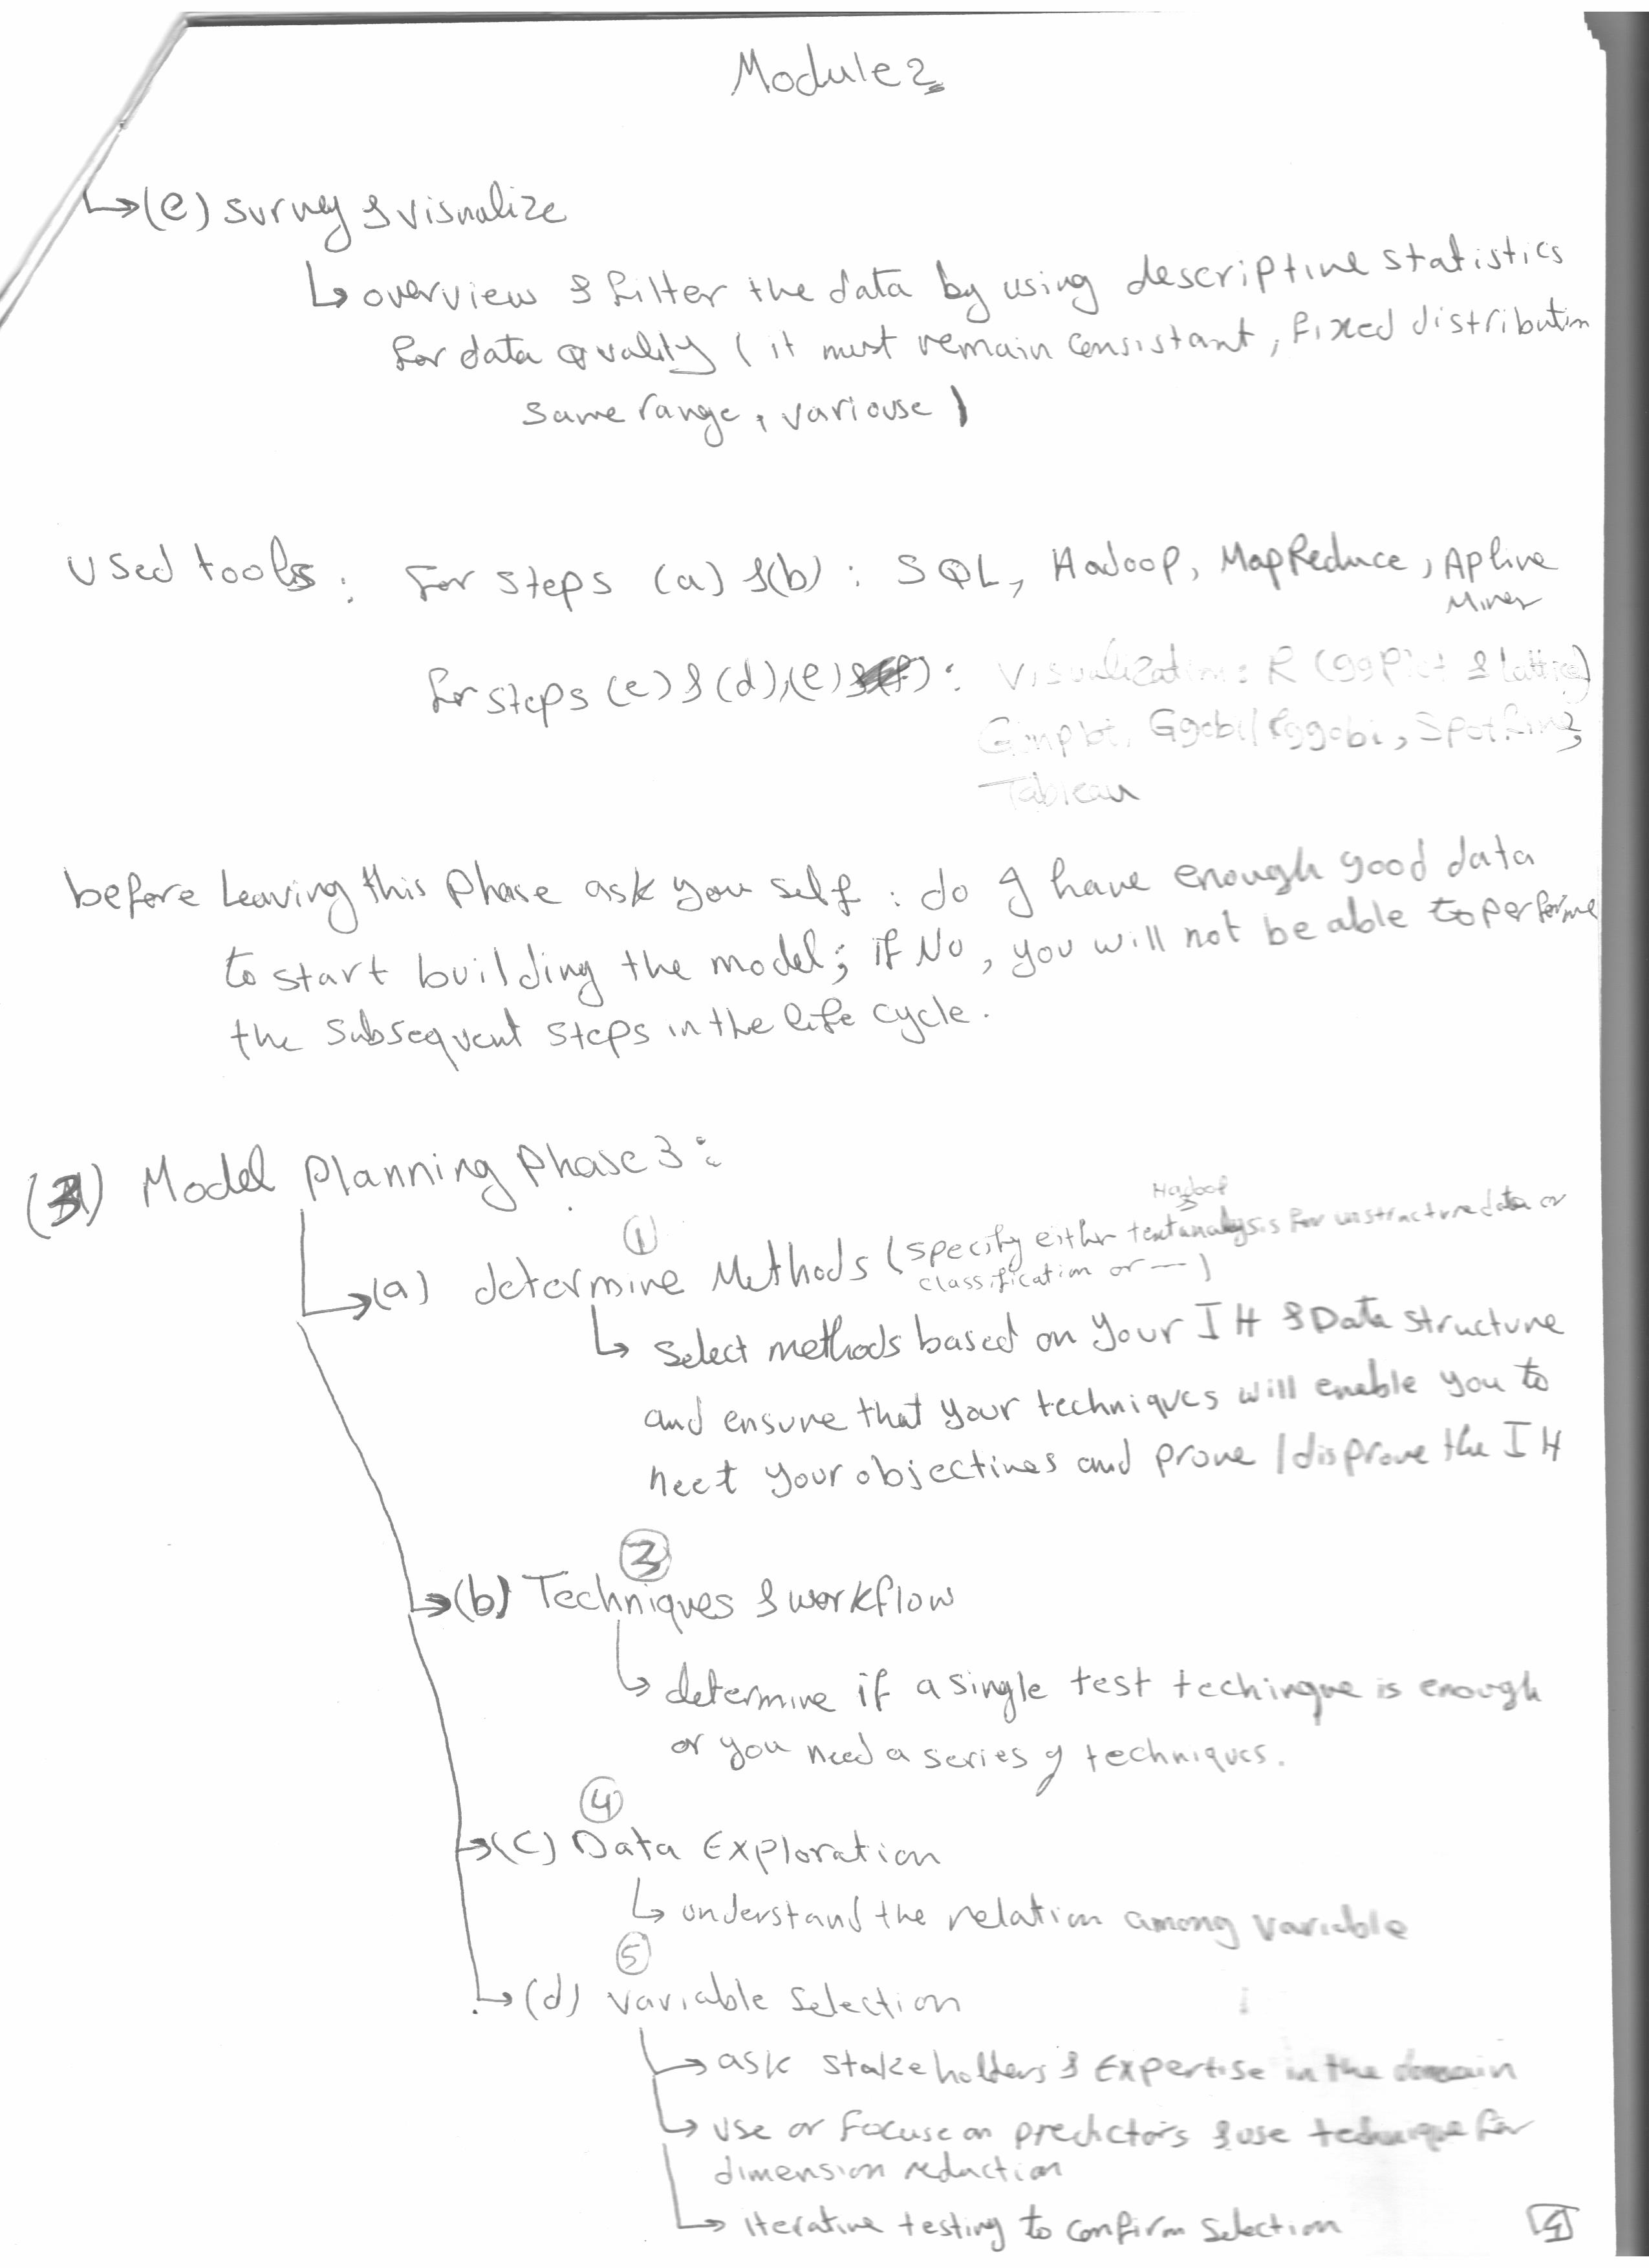 Module 2
↳(e) survey & visualize
↳ overview & filter the data by using descriptive statistics
for data quality (it must remain consistant, fixed distribution
same range, variouse)
Used tools: For steps (a) &(b): SQL, Hadoop, MapReduce, Apline
Miner
for steps (c) & (d),(e): Visualization: R (ggplot & lattice)
Gnuplot, Ggobi/Rggobi, Spotfire,
Tableau
before Leaving this Phase ask you self: do I have enough good data
to start building the model; if No, you will not be able to performe
the subsequent steps in the life cycle.
(3) Model Planning Phase 3:
Hadoop
①
(a) determine Methods (specify either text analysis for unstructure data or
classification or —)
↳ Select methods based on your IH & Data structure
and ensure that your techniques will enable you to
meet your objectives and prove / disprove the IH
③
(b) Techniques & workflow
↳ determine if a single test techinque is enough
or you need a series of techniques.
④
(c) Data Exploration
↳ understand the relation among variable
⑤
(d) Variable Selection
→ ask stakeholders & Expertise in the domain
→ use or focuse on predictors & use technique for
dimension reduction
→ iterative testing to confirm selection